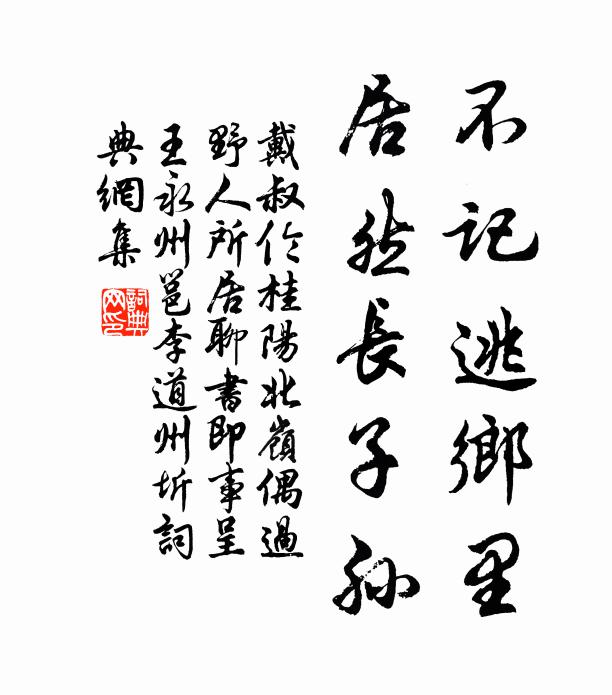 不記逃鄉里
居然長子孫
戴叔伦桂陽北嶺偶過
野人所居聊書即事呈
王永州邕李道州圻詞
典網集
詞典
网印